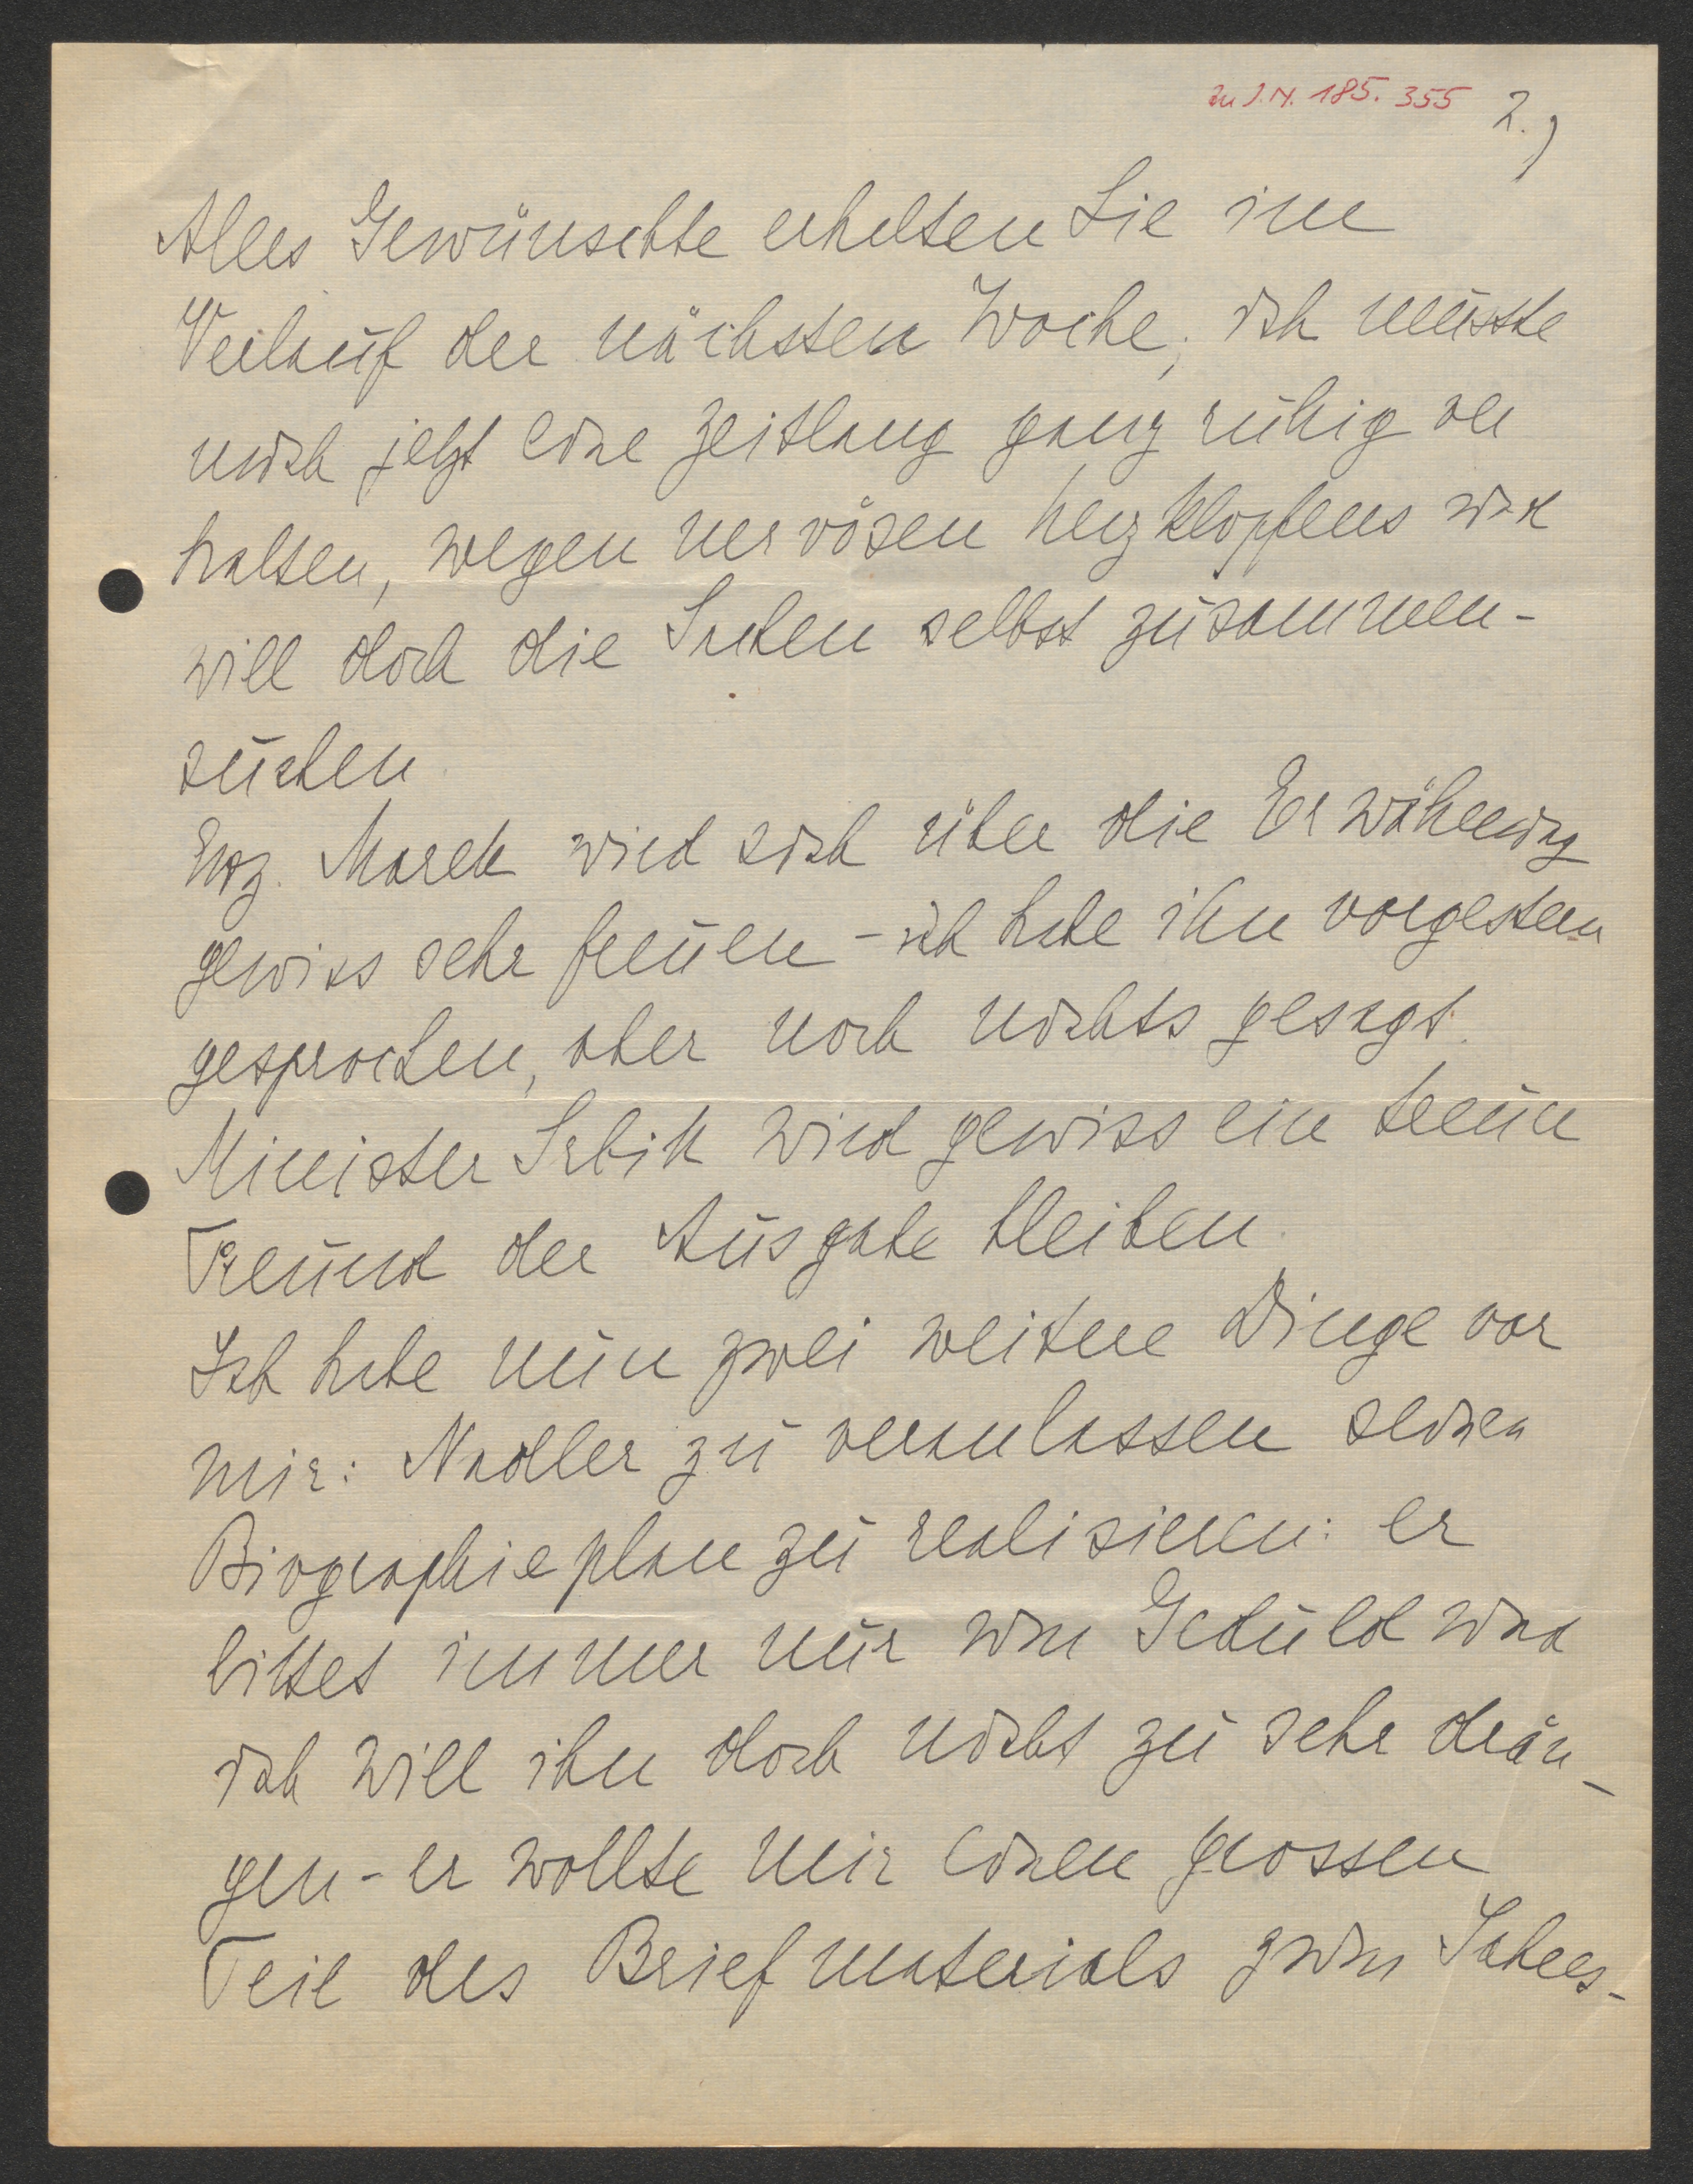 zu I.N. 185.355 2.)
Alles Gewünschte erhalten Sie im
Verlauf der nächsten Woche; ich musste
mich jetzt eine Zeitlang ganz ruhig
halten, wegen nervösen Herzklopfens und
will doch die Sachen selbst zusammen-
suchen.
Marek wird sich über die Erwähnung
gewiss sehr freuen - ich habe ihn vorgestern
gesprochen, aber noch nichts gesagt.
Minister Srbik wird gewiss ein treuer
Freund der Ausgabe bleiben.
Ich habe nun zwei weitere Dinge vor
mir: Nadler zu veranlassen seinen
Biographieplan zu realisieren: er
bittet immer nur um Geduld und
ich will ihn doch nicht zu sehr drän-
gen - er wollte mir einen grossen
Teil des Briefmaterials zum Jahres-